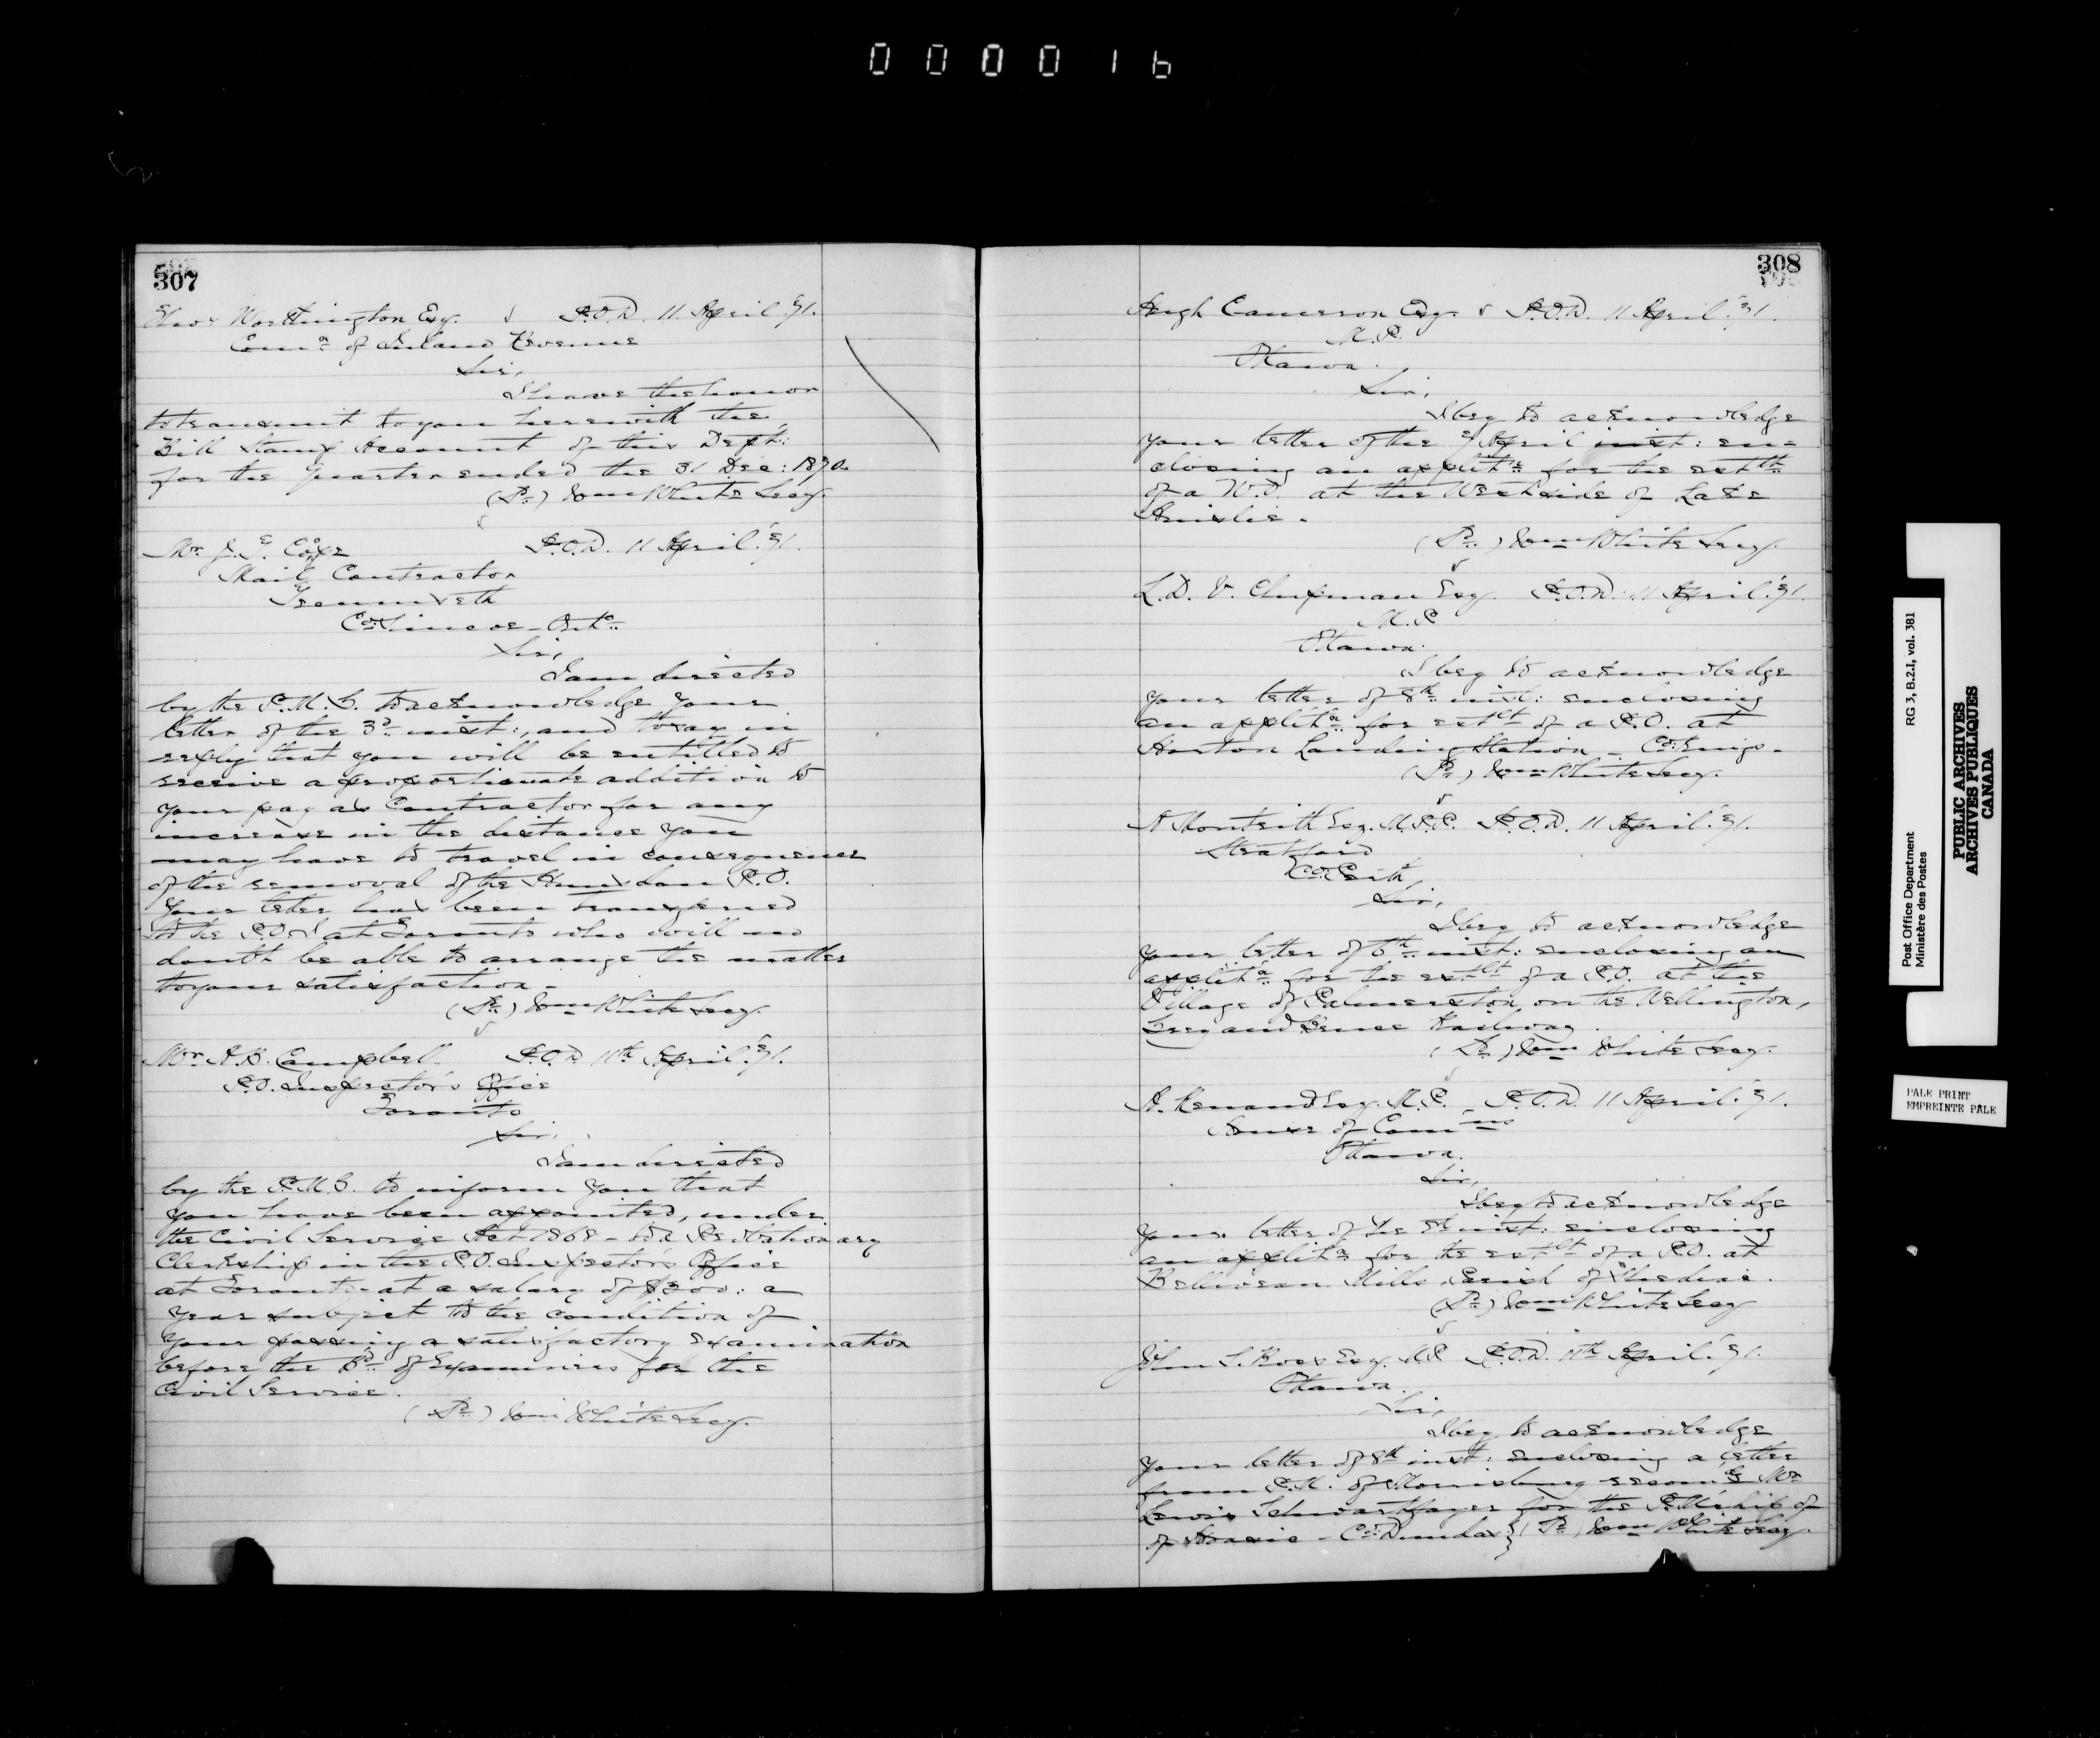 000016
307
Thos Worthington Esq. P.O.D. 11 April '71.
Comr of Inland Revenue
Sir,
I have the honor
to transmit to you herewith the
Bill Stamp Account of this Dept:
for the quarter ended the 31 Dec: 1870.
(Sd) Wm White Secy.
Mr J. T. Cope P.O.D. 11 April '71.
Mail Contractor
Tecumseth
Co: Simcoe - Onto
Sir,
I am directed
by the P.M.G. to acknowledge your
letter of the 3d inst:, and to say in
reply that you will be entitled to
receive a proportionate addition to
your pay as Contractor for any
increase in the distance you
may have to travel in consequence
of the removal of the P.O.
Your letter has been transferred
to the P.O.I at Toronto who will no
doubt be able to arrange the matter
to your satisfaction -
(Sd) Wm White Secy.
Mr A.B. Campbell P.O.D 11th April '71.
P.O. Inspector's Office
Toronto
Sir,
I am directed
by the P.M.G. to inform you that
you have been appointed, under
the Civil Service Act 1868 - to a Probationary
Clerkship in the P.O. Inspector's Office
at Toronto - at a salary of $300: a
year subject to the condition of
your passing a satisfactory examination
before the Bd of Examiners for the
Civil Service.
(Sd) Wm White Secy.
308
Hugh Cameron Esq. P.O.D. 11 April '71.
M.P.
Ottawa.
Sir,
I beg to acknowledge
your letter of the 7 April inst: en=
closing an applitn for the estlt
of a W.O. at the West side of Lake
Ainslie.
(Sd) Wm White Secy.
L.D.V. Chipman Esq. P.O.D. 11 April '71.
M.P
Ottawa.
I beg to acknowledge
your letter of 8th inst: enclosing
an applitn for estlt of a P.O. at
Horton Landing Station - Co: Kings -
(Sd) Wm White Secy.
A Monteith Esq. M.P.P. P.O.D. 11 April '71.
Stratford
Co: Perth
Sir,
I beg to acknowledge
your letter of 6th inst: enclosing an
applitn for the estlt of a P.O. at the
Village of Palmerston on the Wellington,
Grey and Bruce Railway.
(Sd) Wm White Secy.
A. Renaud Esq. M.P. P.O.D. 11 April '71.
House of Comns
Ottawa.
Sir,
I beg to acknowledge
your letter of the inst: enclosing
an applitn for the estlt of a P.O. at
Belliveau Mills, Parish of Shediac.
(Sd) Wm White Secy
John S. Ross Esq. M.P P.O.D. 11th April '71.
Ottawa.
Sir,
I beg to acknowledge
your letter of 8th inst: enclosing a letter
from P.M. of Morrisburg recomdg Mr
Lewis for the P.M.ship of
of - Co: Dundas (Sd) Wm White Secy.
Post Office Department RG 3, B.2.I, vol. 381
Ministère des Postes
PUBLIC ARCHIVES
ARCHIVES PUBLIQUES
CANADA
PALE PRINT
EMPREINTE PÂLE